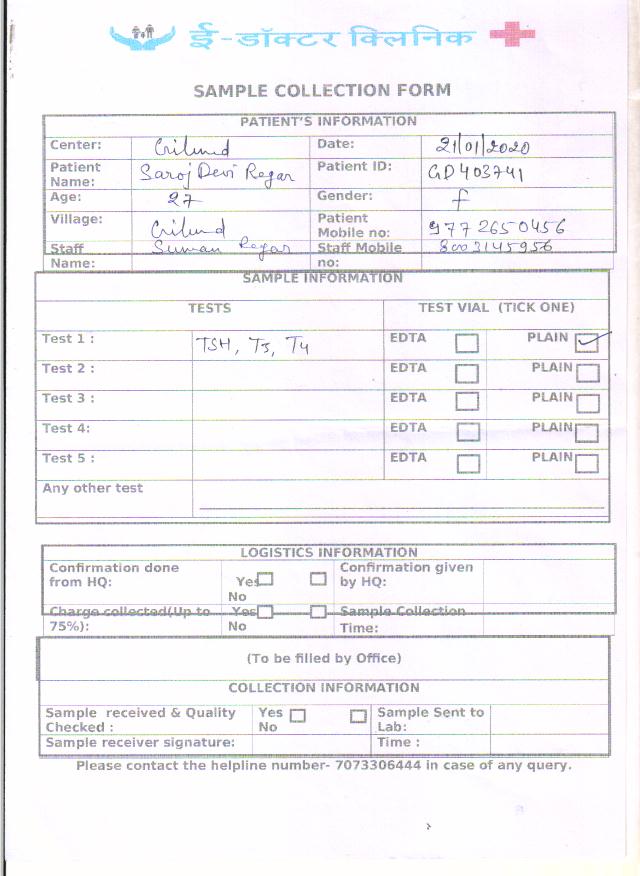 ई-डॉक्टर क्लिनिक
SAMPLE COLLECTION FORM
PATIENT'S INFORMATION
Center: Date: 21/01/2020
Patient Name: Saroj Devi Regar Patient ID: GD403741
Age: 27 Gender: f
Village: Patient Mobile no: 9772650456
Staff Name: Suman Regar Staff Mobile no: 8003145956
SAMPLE INFORMATION
TESTS TEST VIAL (TICK ONE)
Test 1 : TSH, T3, T4 EDTA PLAIN
Test 2 : EDTA PLAIN
Test 3 : EDTA PLAIN
Test 4: EDTA PLAIN
Test 5 : EDTA PLAIN
Any other test
LOGISTICS INFORMATION
Confirmation done from HQ: Yes No Confirmation given by HQ:
Charge collected(Up to 75%): Yes No Sample Collection Time:
(To be filled by Office)
COLLECTION INFORMATION
Sample received & Quality Checked : Yes No Sample Sent to Lab:
Sample receiver signature: Time :
Please contact the helpline number- 7073306444 in case of any query.